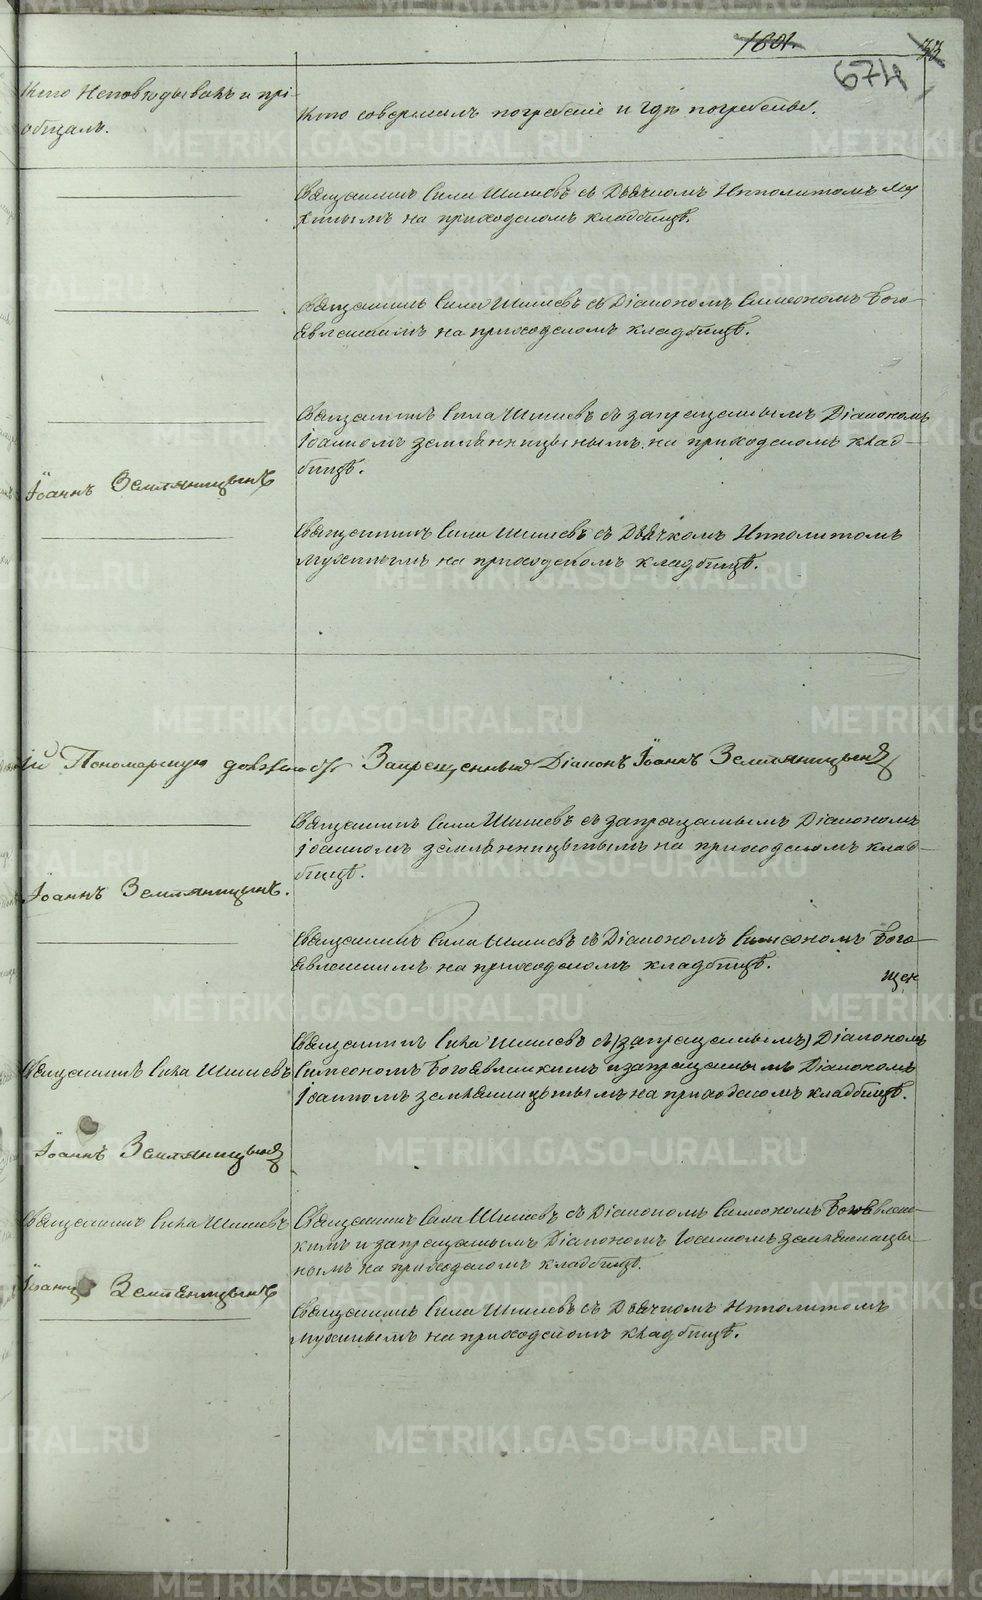 1801.
33
674
Кто Исповѣдывалъ и прі-
общалъ.
Кто совершилъ погребеніе и гдѣ погребены.
Священникъ Сила Шишевъ съ Дьячкомъ Ипполитомъ Му
хинымъ на приходскомъ кладбищѣ.
Священникъ Сила Шишевъ съ Діакономъ Симеономъ Бого-
явленскимъ на приходскомъ кладбищѣ.
Священникъ Сила Шишевъ съ запрещеннымъ Діакономъ
Іоанномъ Земляницынымъ на приходскомъ клад-
бищѣ.
Іоаннъ Земляницынъ
Священникъ Сила Шишевъ съ Дьячкомъ Ипполитомъ
Мухинымъ на приходскомъ кладбищѣ.
Пономарскую должность Запрещенный Діаконъ Іоаннъ Земляницынъ
Священникъ Сила Шишевъ съ запрещеннымъ Діакономъ
Іоанномъ Земляницынымъ на приходскомъ клад-
бищѣ.
Іоаннъ Земляницынъ.
Священникъ Сила Шишевъ съ Діакономъ Симеономъ Бого-
явленскимъ на приходскомъ кладбищѣ.
щен
Священникъ Сила Шишевъ съ (запрещеннымъ) Діакономъ
Священникъ Сила Шишевъ Симеономъ Богоявленскимъ и запрещеннымъ Діакономъ
Іоанномъ Земляницынымъ на приходскомъ кладбищѣ.
Іоаннъ Земляницынъ
Священникъ Сила Шишевъ Священникъ Сила Шишевъ съ Діакономъ Симеономъ Богоявленс-
кимъ и запрещеннымъ Діакономъ Іоанномъ Земляницы-
нымъ на приходскомъ кладбищѣ.
Іоаннъ Земляницынъ
Священникъ Сила Шишевъ съ Дьячкомъ Ипполитомъ
Мухинымъ на приходскомъ кладбищѣ.
METRIKI.GASO-URAL.RU